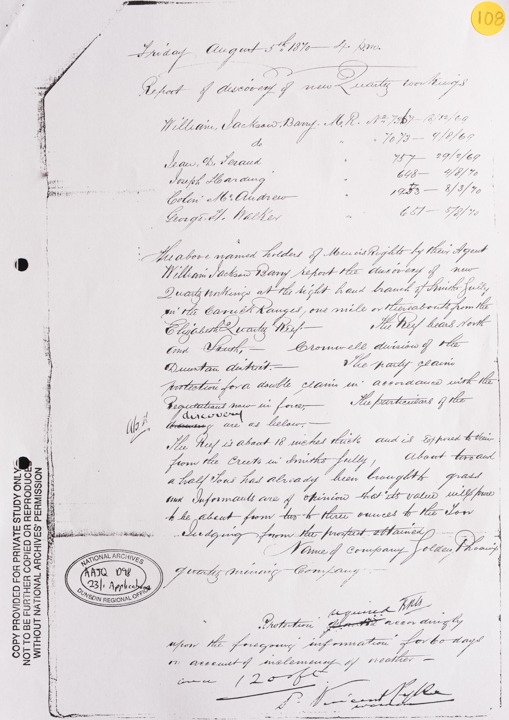 108
Friday August 5th 1870 — 4 p.m.
Report of discovery of new Quartz workings
William Jackson Barry M.R. No 7367 – 15/12/69
do " 7073 – 4/8/69
Jean D. Feraud " 757 – 29/2/69
Joseph Harding " 648 – 4/8/70
Colin McAndrew " 1953 – 8/3/70
George H. Walker " 651 – 5/8/70
The above named holders of Miners Rights by their Agent
William Jackson Barry report the discovery of new
Quartz workings at the right hand branch of Smiths Gully
in the Carrick Ranges, one mile or thereabouts from the
Elizabeth Quartz Reef — The Reef bears North
and South, — Cromwell division of the
Dunstan district. — The party claim
protection for a double claim in accordance with the
Regulations now in force, — The particulars of the
discovery
are as below. —
The Reef is about 18 inches thick and is exposed to view
from the Creek in Smiths Gully, about two and
a half tons has already been brought to grass
and Informants are of opinion that its value will prove
to be about from two to three ounces to the Ton
judging from the prospect obtained
Name of Company Golden
quartz mining Company —
Protection required accordingly
upon the foregoing information for 60 days
on account of inclemency of weather —
over 1200 ft
P. Vincent Pyke
Warden
NATIONAL ARCHIVES
AAJQ D98
23/1 Applications
DUNEDIN REGIONAL OFFICE
COPY PROVIDED FOR PRIVATE STUDY ONLY
NOT TO BE FURTHER COPIED OR REPRODUCED
WITHOUT NATIONAL ARCHIVES' PERMISSION